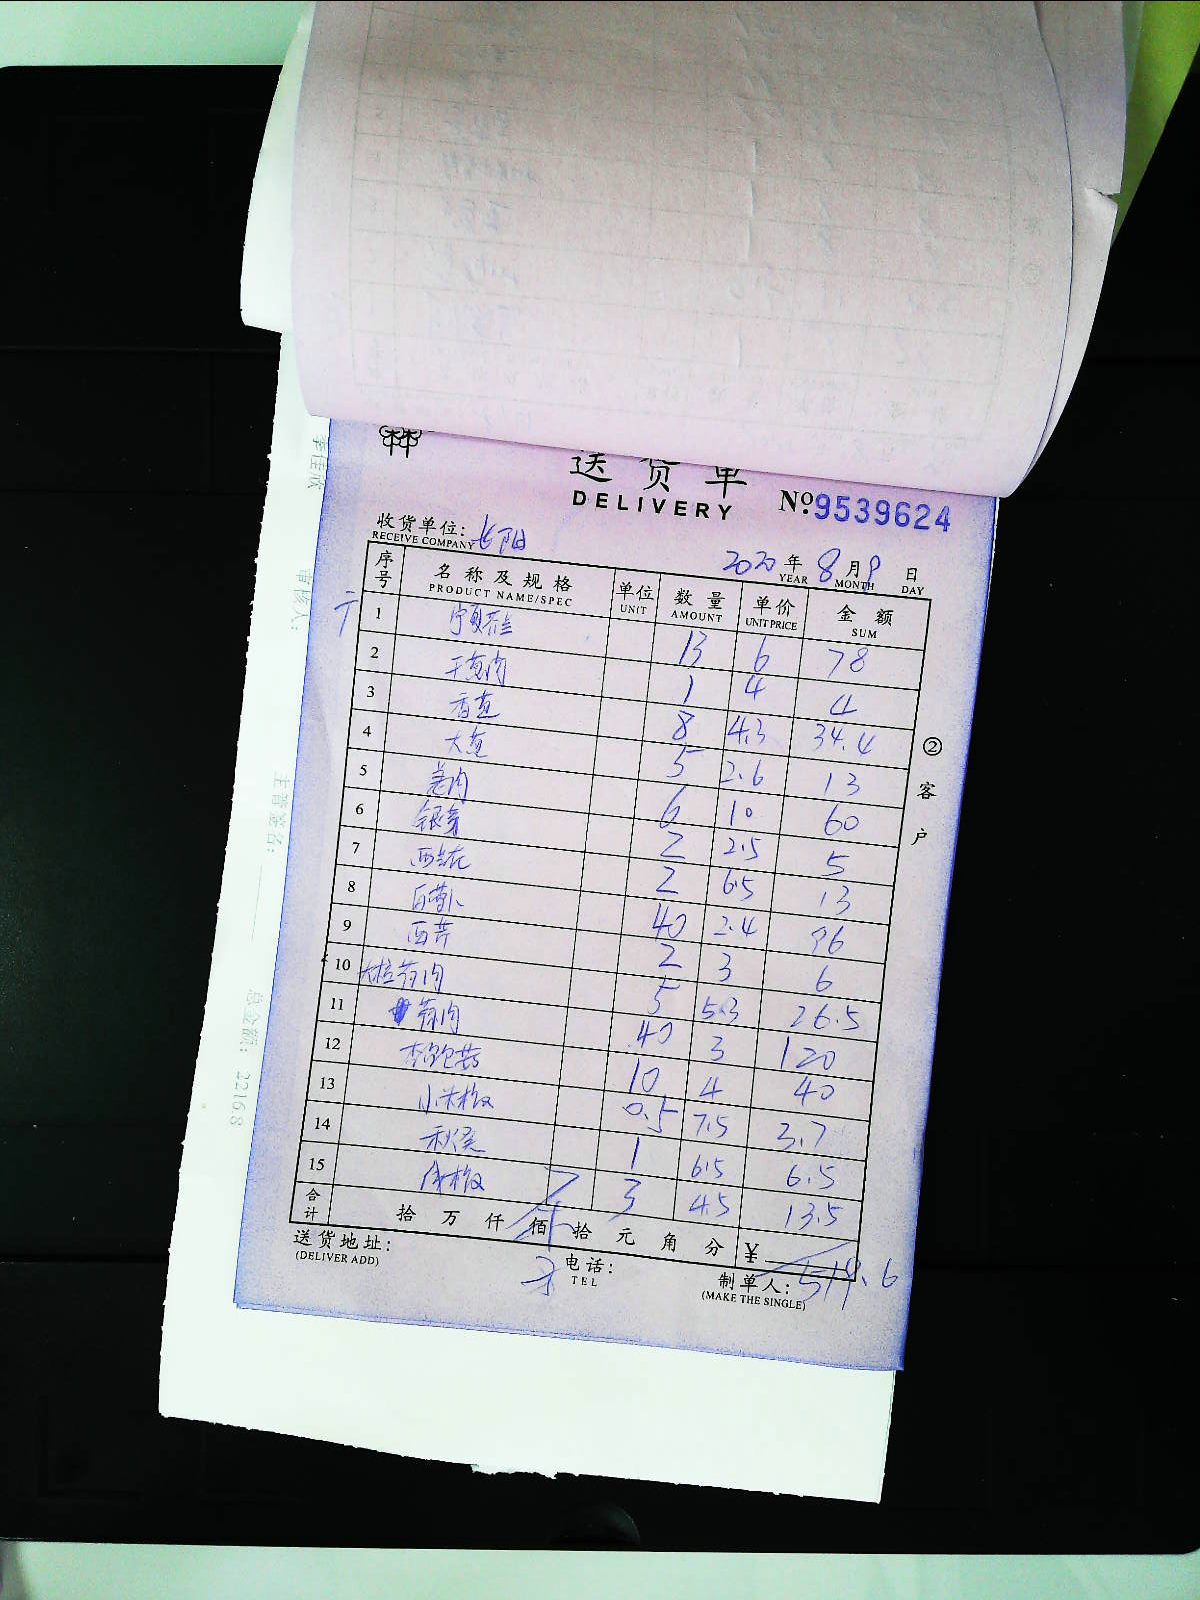 送货单
DELIVERY
№:9539624
收货单位: 长阳
RECEIVE COMPANY
2020 年 8 月 9 日
YEAR MONTH DAY
序号 名称及规格 单位 数量 单价 金额
PRODUCT NAME/SPEC UNIT AMOUNT UNIT PRICE SUM
1 宁夏芥兰 13 6 78
2 干葱肉 1 4 4
3 香葱 8 4.3 34.4
4 大葱 5 2.6 13
5 姜肉 6 10 60
6 银芽 2 2.5 5
7 西兰花 2 6.5 13
8 白萝卜 40 2.4 96
9 西芹 2 3 6
10 大粒蒜肉 5 5.3 26.5
11 蒜肉 40 3 120
12 10 4 40
13 小米椒 0.5 7.5 3.7
14 秋葵 1 6.5 6.5
15 3 4.5 13.5
合计 拾 万 仟 佰 拾 元 角 分 ¥ 519.6
送货地址:
(DELIVER ADD)
电话:
TEL
制单人:
(MAKE THE SINGLE)
② 客户
审核人:
主管签名:
总金额: 22168